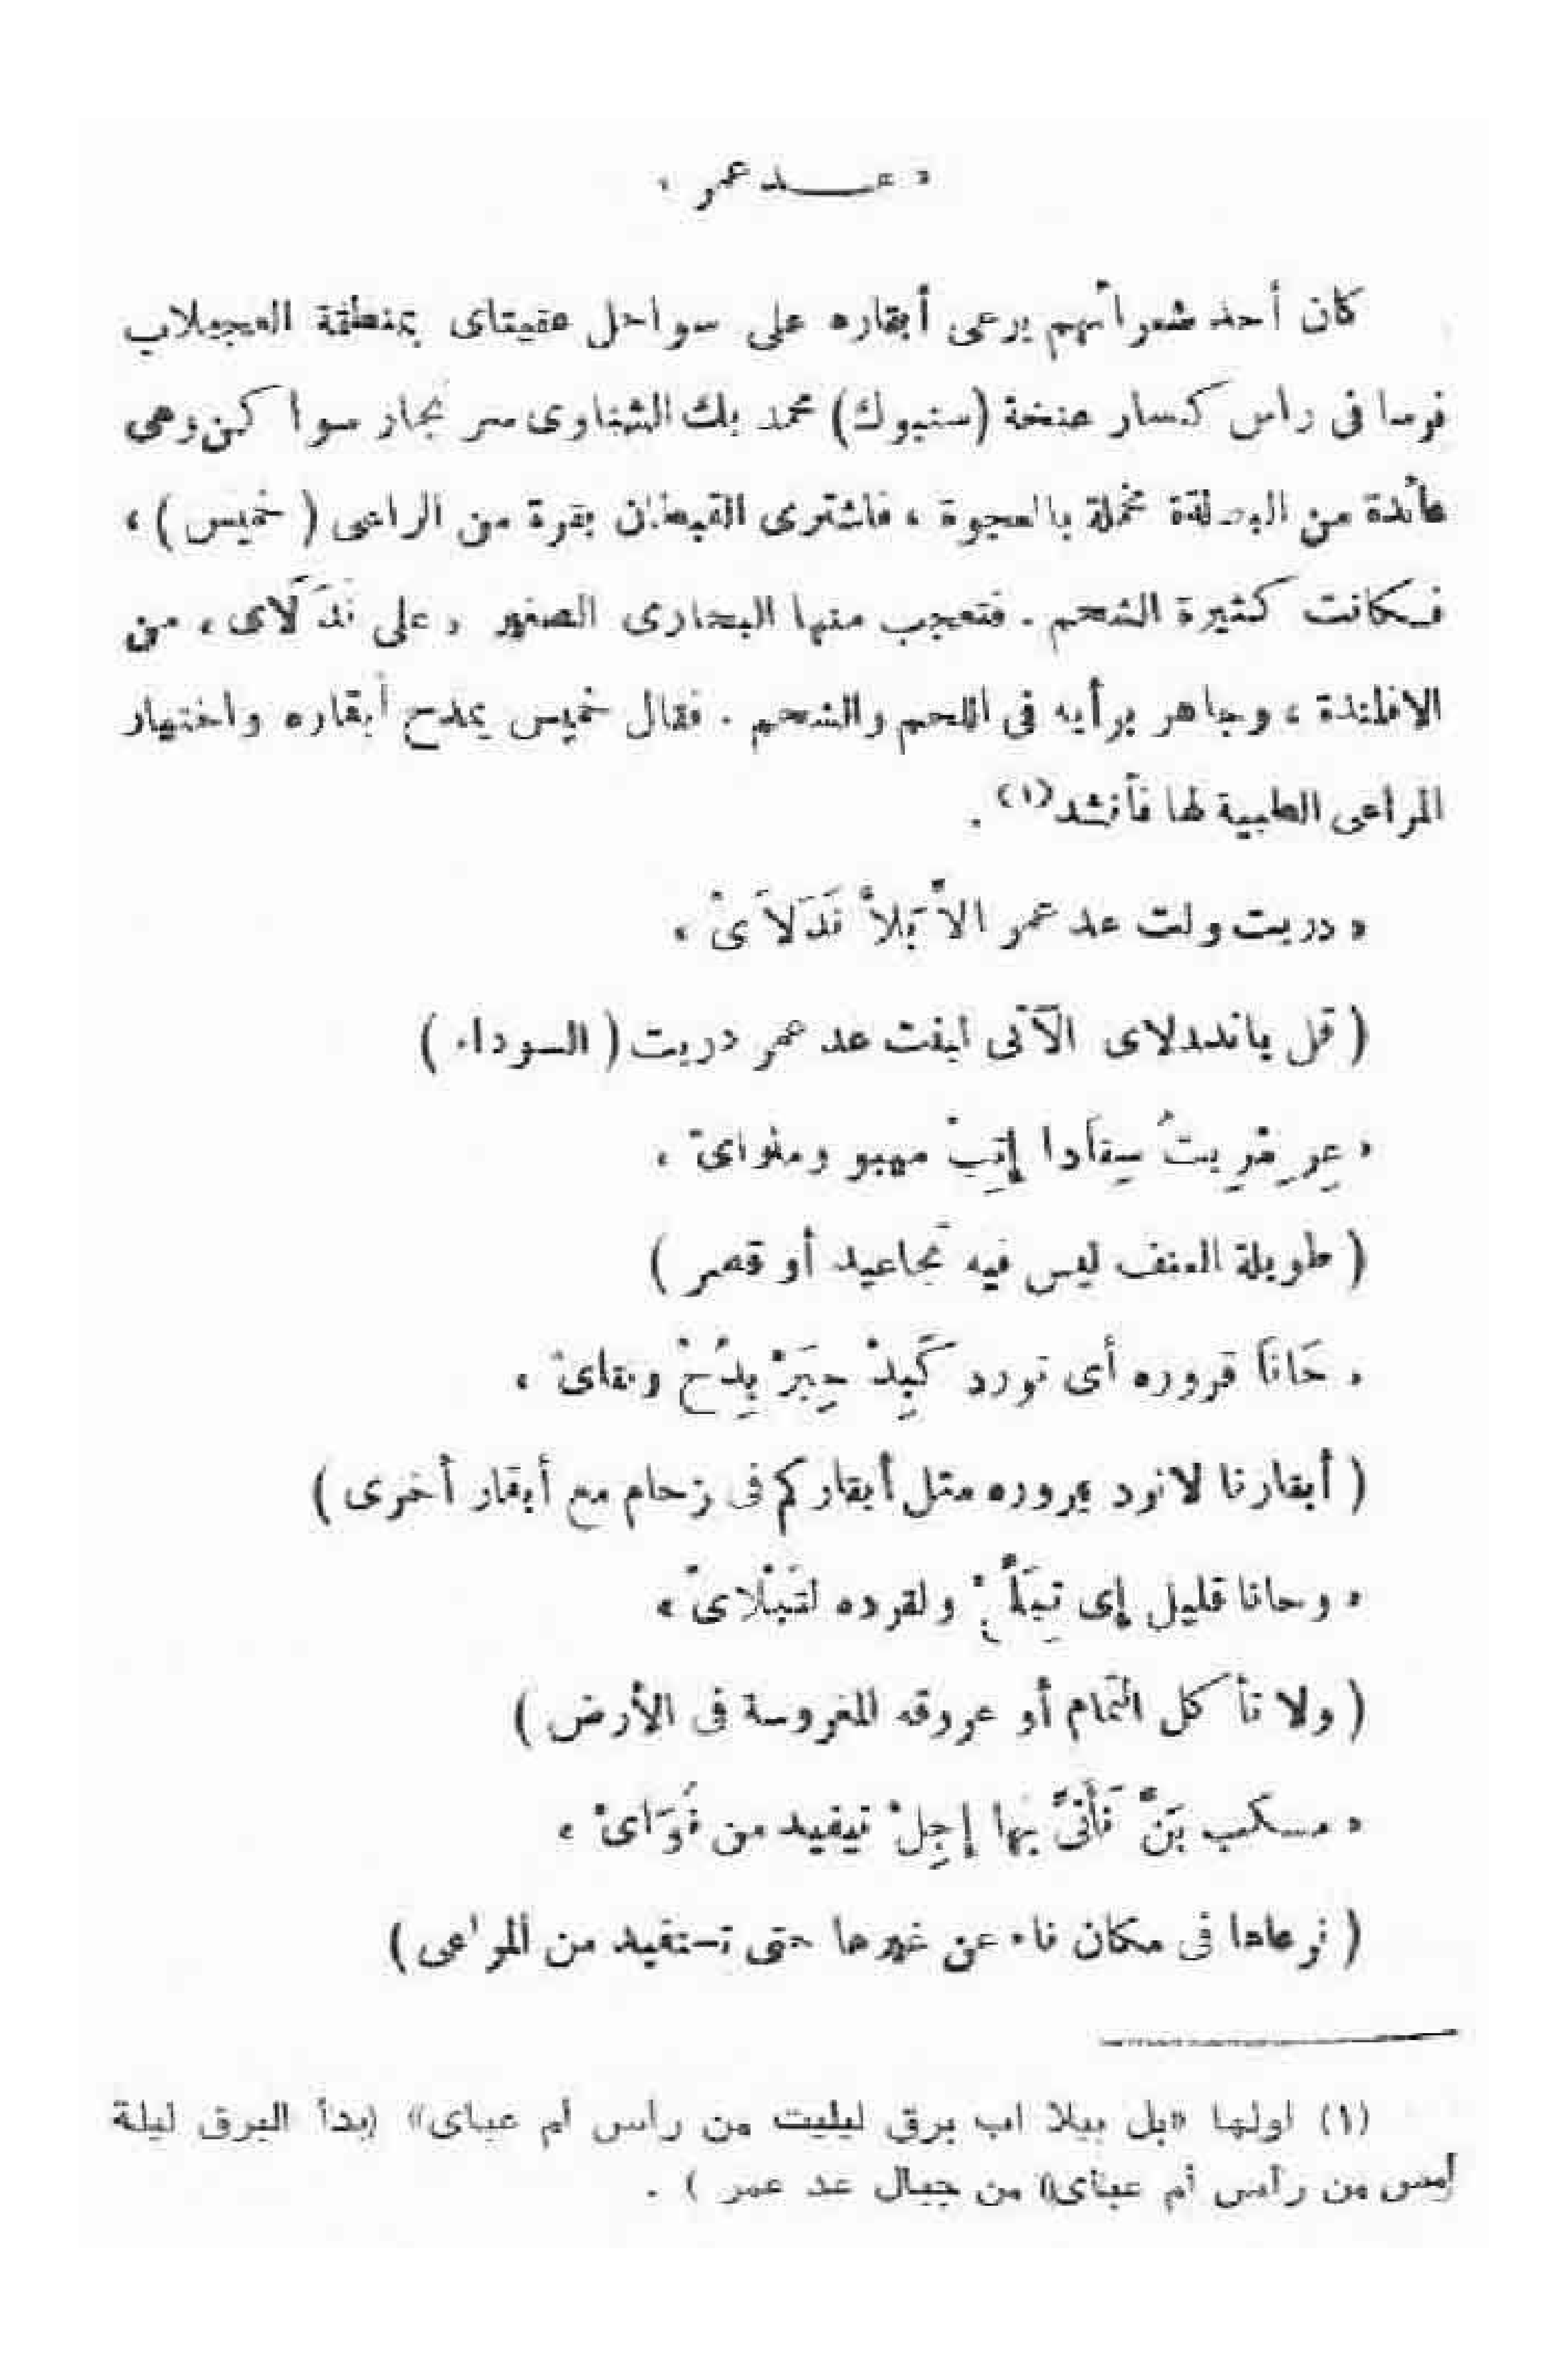 « عـــد عمر »
كان أحد شعرائهم يرعى أبقاره على سواحل عقيتاى بمنطقة العجيلاب
فرسا فى راس كسار عنخة (سنبوك) محمد بك الشناوى سر تجار سواكن وهى
عائدة من البصقة محملة بالعجوة ، فاشترى القبطان بقرة من الراعى ( خميس ) ،
فكانت كثيرة الشحم . فتعجب منها البحارى الصغير « على نَدَلَاى » من
الافلندة ، وجاهر برأيه فى اللحم والشحم . فقال خميس يمدح أبقاره واختيار
المراعى الطيبة لها فأنشد (١) .
« دربت ولت عد عمر الاَّ بَلاَّ نَدَلاَىْ »
( قل ياندلاى الآتى ابنت عد عمر دربت ( السوداء )
مهبو
( طويلة العنق ليس فيه تجاعيد أو قصر )
« حَانَا قروره أى تورد كَبِدْ حِبَرْ بِدُحْ وبقاىْ »
( أبقارنا لا ترد بروره مثل أبقاركم فى زحام مع أبقار أخرى )
« وحانا قليل إى ولقرده لتَبْلاىْ »
( ولا تأكل الثمام أو عروقه المغروسة فى الأرض )
« مسكب بَنَّ نَأَتَّى بها إجِلْ تيفيد من فُوَاىْ »
( نرعاها فى مكان ناء عن غيرها حتى تستفيد من المراعى )
(١) اولها «بل بيلا اب برق ليليت من راس أم عباى» (بدأ البرق ليلة
أمس من رأس أم عباى» من جبال عد عمر ) .